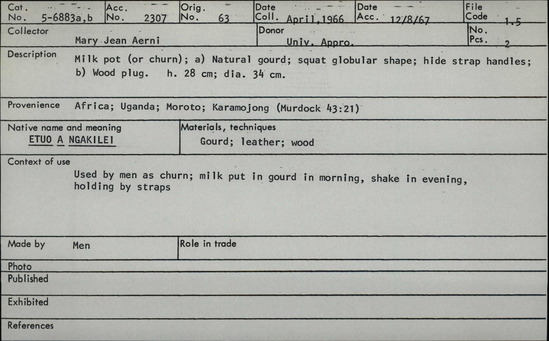 Cat. No. 5-6883a,b Acc. No. 2307 Orig. No. 63 Date Coll. April,1966 Date Acc. 12/8/67 File Code 1.5
Collector Mary Jean Aerni Donor Univ. Appro. No. Pcs. 2
Description Milk pot (or churn); a) Natural gourd; squat globular shape; hide strap handles;
b) Wood plug. h. 28 cm; dia. 34 cm.
Provenience Africa; Uganda; Moroto; Karamojong (Murdock 43:21)
Native name and meaning Materials, techniques
ETUO A NGAKILEI Gourd; leather; wood
Context of use
Used by men as churn; milk put in gourd in morning, shake in evening,
holding by straps
Made by Men Role in trade
Photo
Published
Exhibited
References